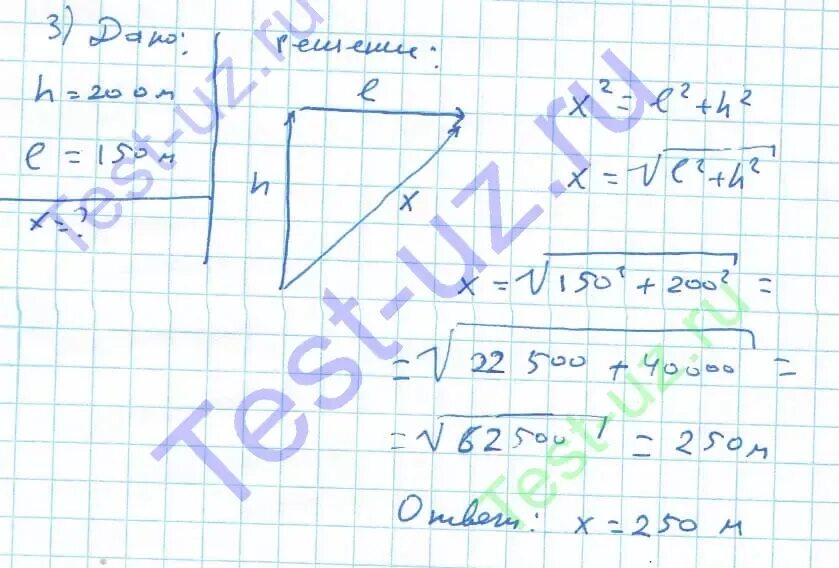 3) Дано:
h = 200м
l = 150м
x = ?
решение:
l
h
x
x² = l² + h²
x = √l² + h²
x = √150² + 200² =
= √22 500 + 40000 =
= √62500 = 250м
Ответ: x = 250 м
Test-uz.ru
Test-uz.ru
Test-uz.ru